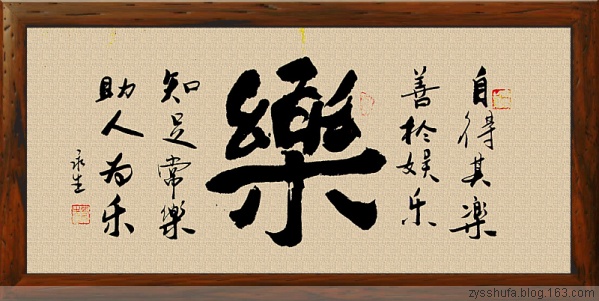 自得其樂
善於娱乐
樂
知足常樂
助人为乐
zysshufa.blog.163.com